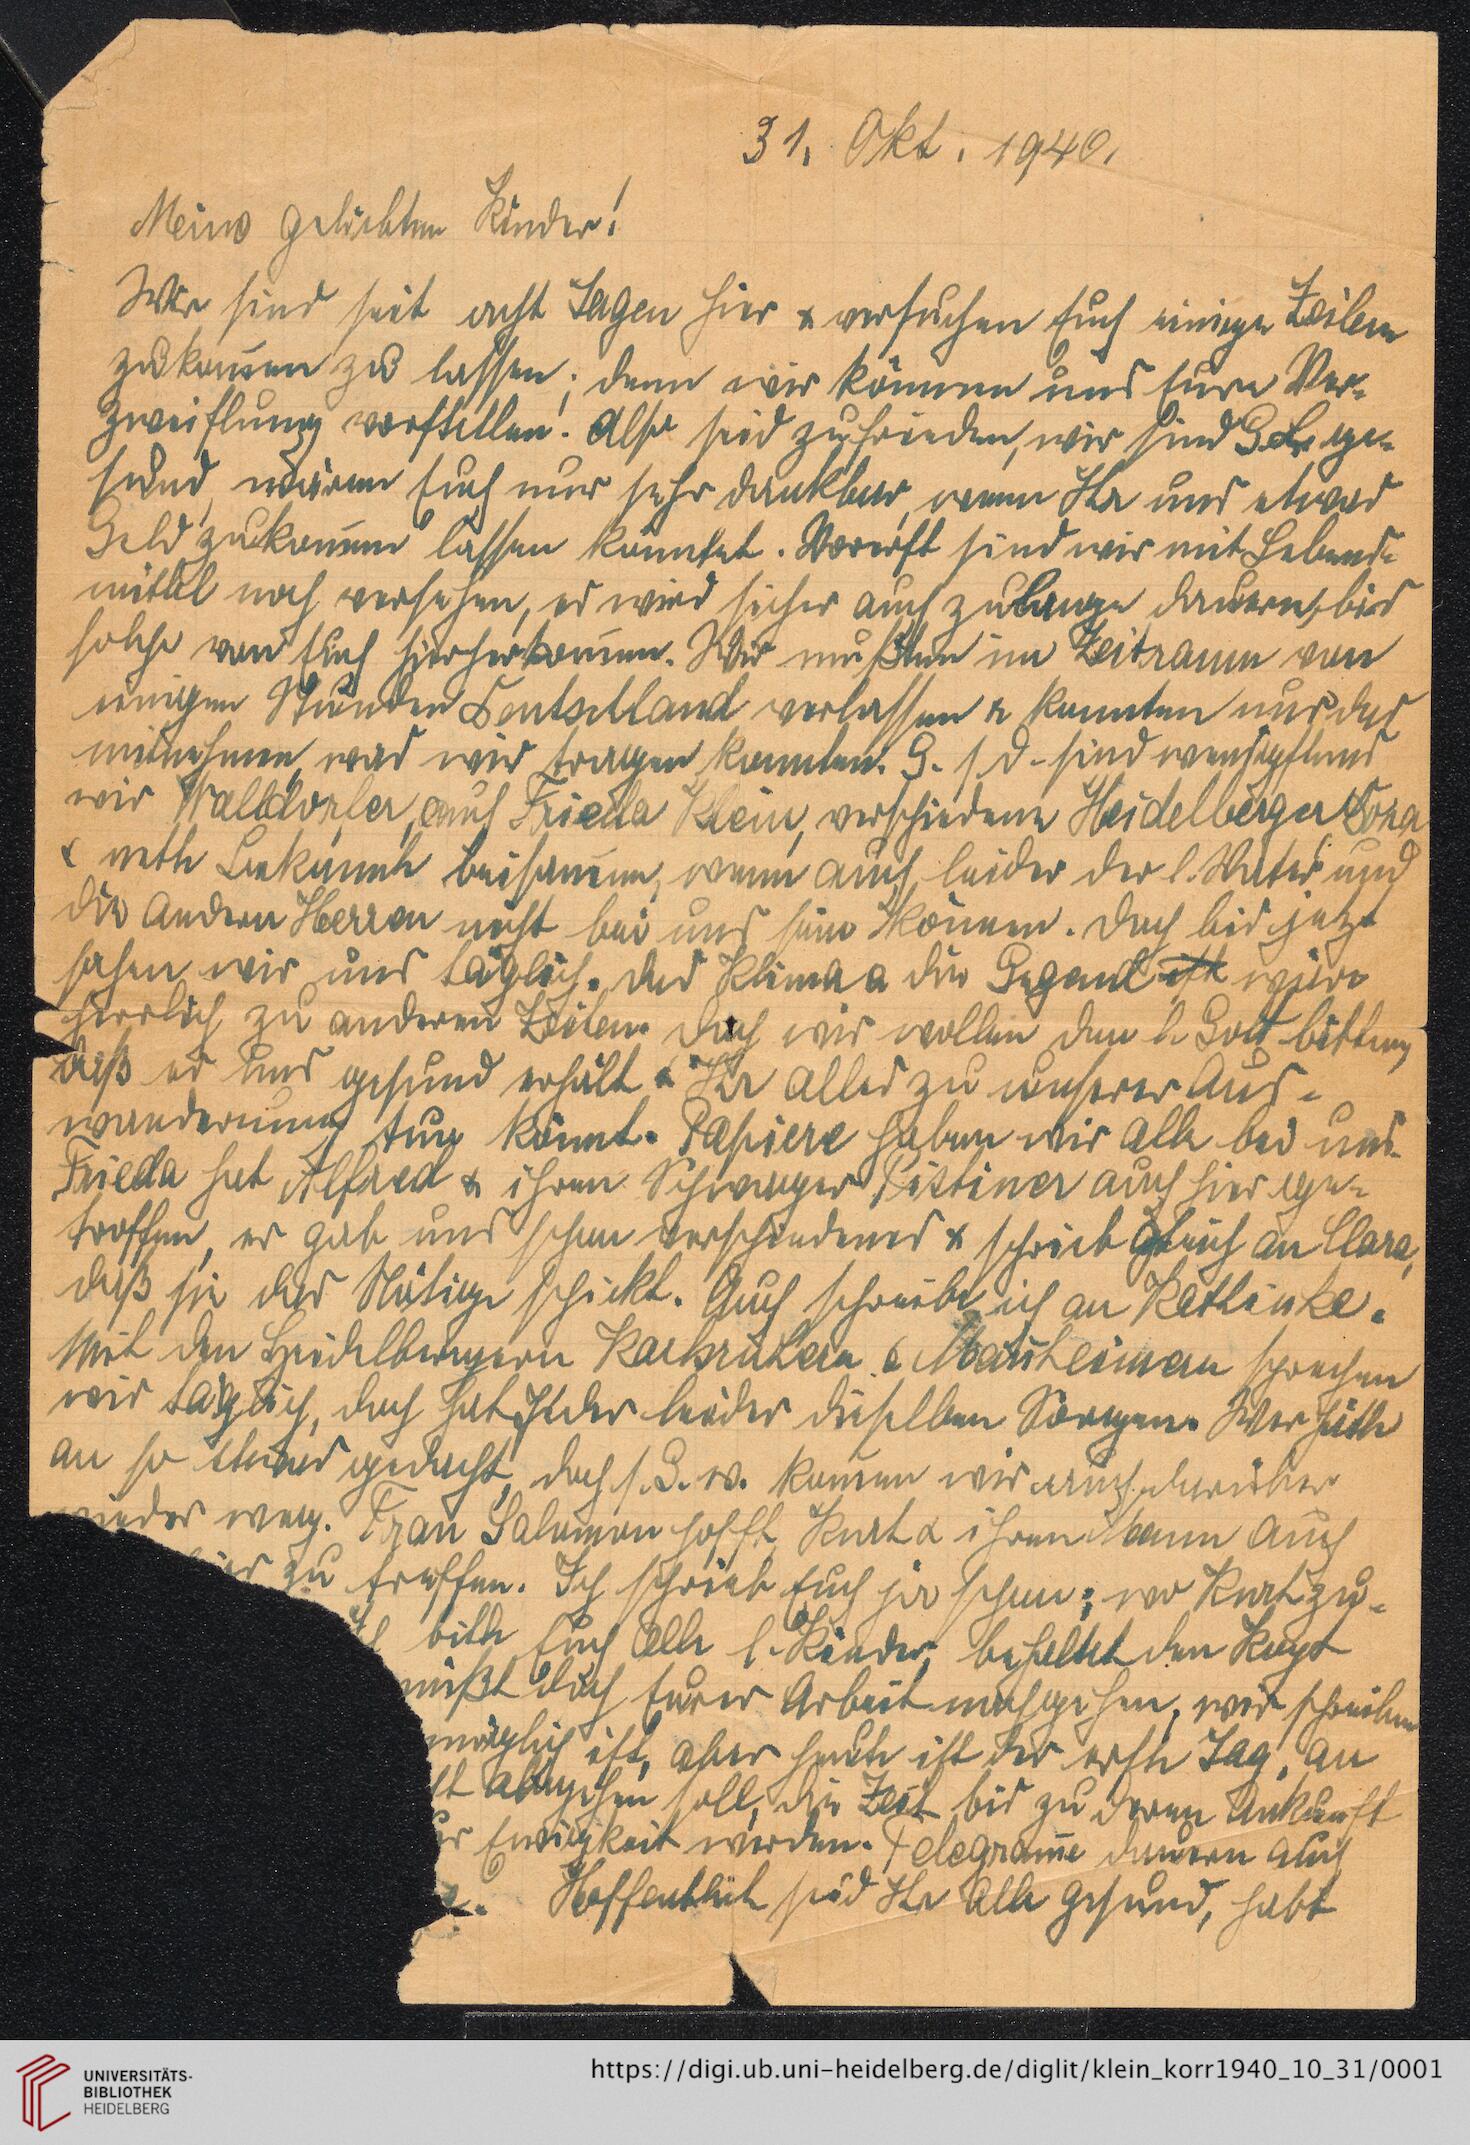 31. Okt. 1940.
Meine geliebten Kinder!
Wir sind seit acht Tagen hier & versuchen Euch einige Zeilen
zukom̄en zu lassen; denn wir können uns Eure Ver-
zweiflung vorstellen! Also seid zufrieden, wir sind G.L. ge-
sund, wären Euch nur sehr dankbar, wenn Ihr uns etwas
Geld zukom̄en lassen könntet. Vorerst sind wir mit Lebens-
mittel noch versehen, es wird sicher auch zu lange dauern, bis
solche von Euch hierherkom̄en. Wir mußten im Zeitraum von
einigen Stunden Deutschland verlassen & konnten nur das
mitnehmen, was wir tragen konnten. G. s. d. sind
wir Walldorfer, auch Frieda Klein, verschiedene Heidelberger
& nette Bekannte beisam̄en, wenn auch leider der l. Vater und
die andern Herren nicht bei uns sein können. Doch bis jetzt
sahen wir uns täglich. Das Klima & die Gegend wäre
herrlich zu anderen Zeiten. Doch wir wollen den l. Gott bitten,
daß er uns gesund erhält & Ihr alles zu unserer Aus-
wanderung tun könnt. Papiere haben wir alle bei uns.
Frieda hat Alfred & ihren Schwager Pistiner auch hier ge-
troffen, er gab uns schon verschiedenes & schrieb gleich an Clara,
daß sie das Nötige schickt. Auch schreibe ich an Kättinke.
Mit den Heidelbergern Karlsruhern & Mannheimern sprechen
wir täglich, doch hat Jeder leider dieselben Sorgen. Wer hätte
an so etwas gedacht, doch s. G. w. kom̄en wir auch darüber
wieder weg. Frau Salomon hofft Kurt & ihren Mann auch
hier zu treffen. Ich schrieb Euch ja schon, wo Kurt zu-
bitte Euch alle l. Kinder, behaltet den Kopf
müßt doch Eurer Arbeit nachgehen, wir schreiben
möglich ist, aber heute ist der erste Tag, an
abgehen soll, die Zeit bis zu deren Ankunft
Ewigkeit werden. Telegram̄e dauern auch
Hoffentlich seid Ihr alle gesund, habt
UNIVERSITÄTS-
BIBLIOTHEK
HEIDELBERG
https://digi.ub.uni-heidelberg.de/diglit/klein_korr1940_10_31/0001